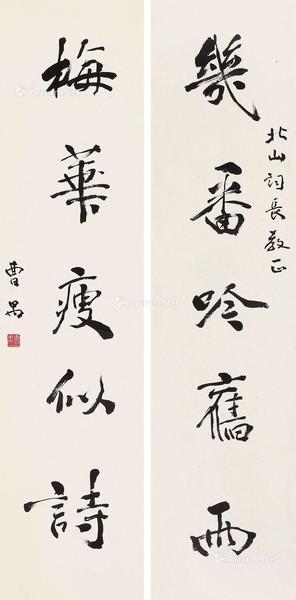 幾番吟舊雨
北山詞長教正
梅華瘦似詩
曹禺